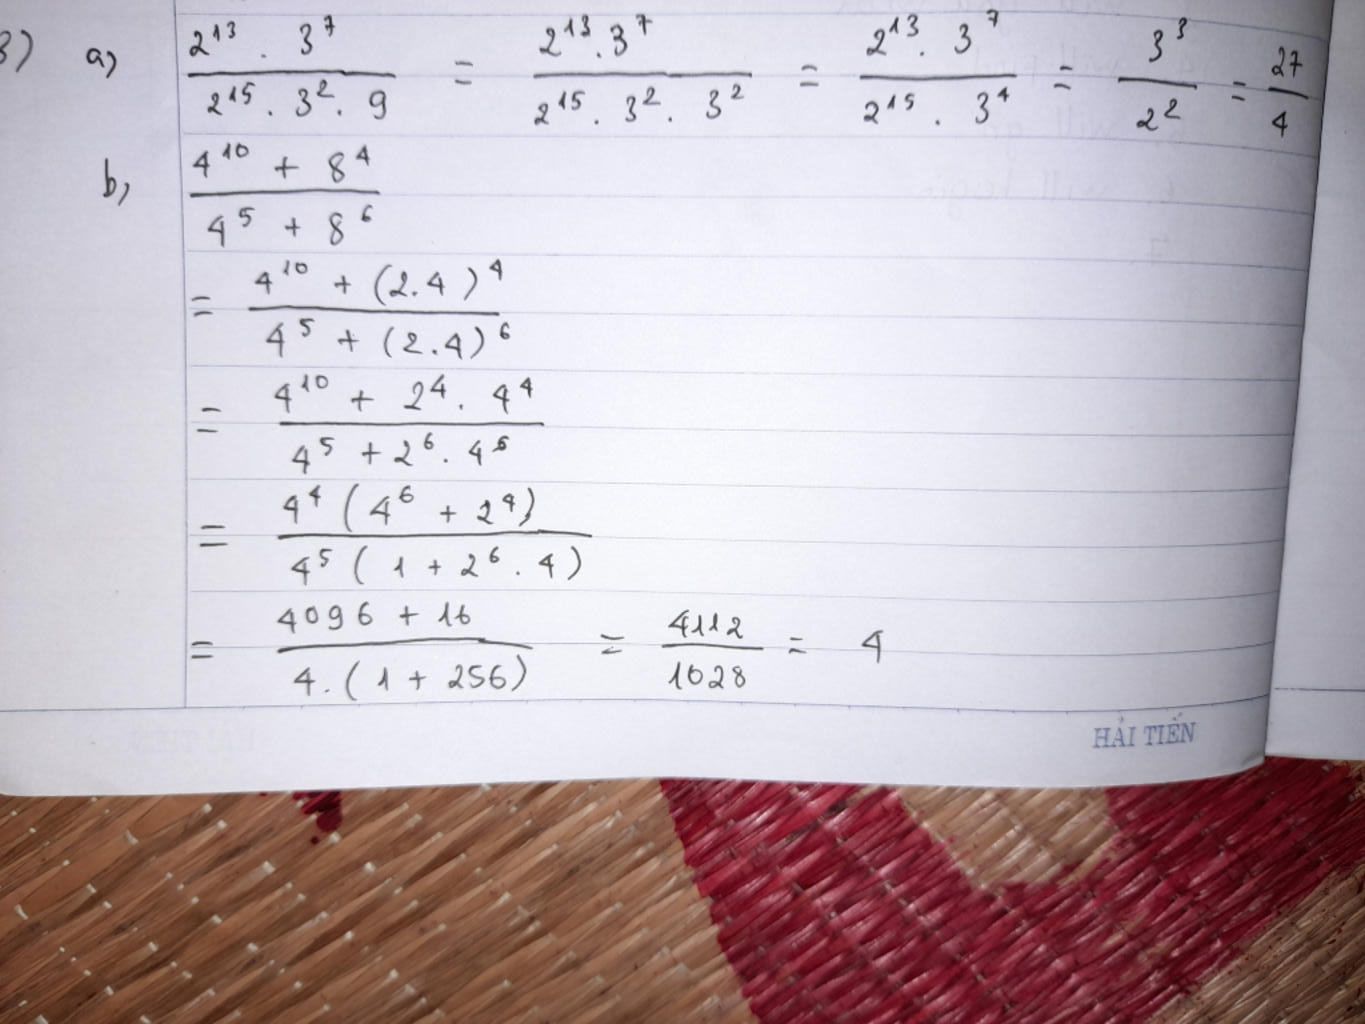 3) a, 2^13 . 3^7 / 2^15 . 3^2 . 9 = 2^13 . 3^7 / 2^15 . 3^2 . 3^2 = 2^13 . 3^7 / 2^15 . 3^4 = 3^3 / 2^2 = 27 / 4
b, 4^10 + 8^4 / 4^5 + 8^6
= 4^10 + (2.4)^4 / 4^5 + (2.4)^6
= 4^10 + 2^4 . 4^4 / 4^5 + 2^6 . 4^6
= 4^4 (4^6 + 2^4) / 4^5 (1 + 2^6 . 4)
= 4096 + 16 / 4.(1 + 256) = 4112 / 1028 = 4
HẢI TIẾN